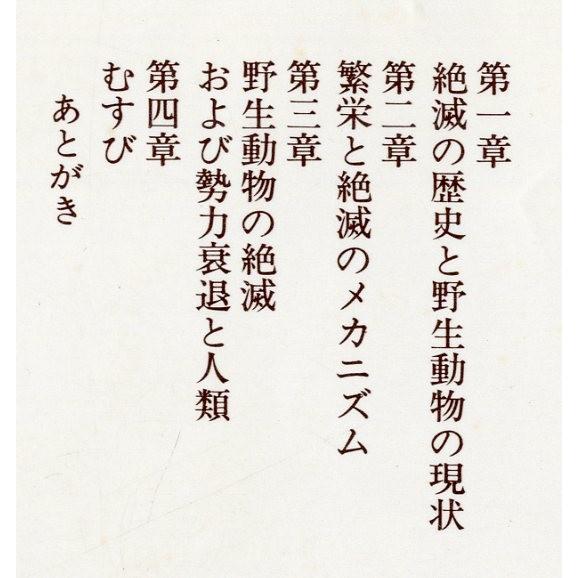 第一章
絶滅の歴史と野生動物の現状
第二章
繁栄と絶滅のメカニズム
第三章
野生動物の絶滅
および勢力衰退と人類
第四章
むすび
あとがき